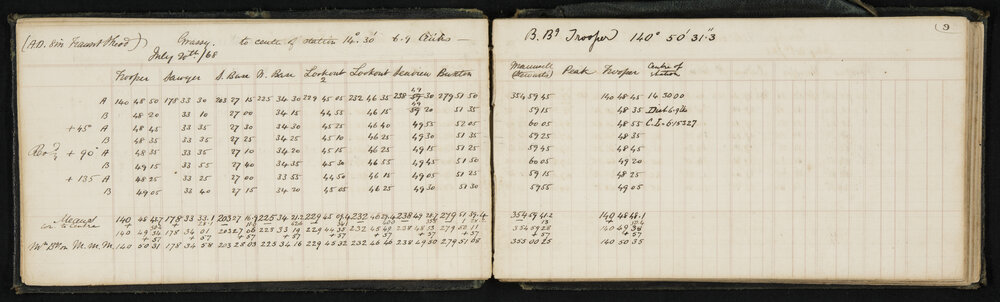 (A.D. 8in Transit Theod) Grassy. to centre of station 14° 30' 6·9 links —
July 20th/68
Trooper Sawyer S. Base N. Base Lookout 2 Lookout Seaview Buxton
A 140 48 50 178 33 30 203 27 15 225 34 30 229 45 05 232 46 35 238 49 30 279 51 50
B 48 20 33 10 27 00 34 15 44 55 46 15 49 20 51 35
+ 45° A 48 45 33 35 27 30 34 30 45 25 46 40 49 55 52 05
B 48 35 33 35 27 25 34 25 45 10 46 25 49 30 51 35
+ 90° A 48 35 33 35 27 10 34 20 45 15 46 25 49 15 51 25
B 49 15 33 55 27 40 34 35 45 30 46 55 49 45 51 50
+ 135 A 48 25 33 25 27 00 33 55 44 50 46 15 49 05 51 25
B 49 05 33 40 27 15 34 20 45 05 46 25 49 30 51 30
Means 140 48 178 33 203 27 225 34 229 45 232 46 238 49 279 51
cor to centre
140 49 34 178 34 01 203 27 06 225 33 19 229 44 35 232 45 49 238 48 53 279 50 11
+ 57 + 57 + 57 + 57 + 57 + 57 + 57 + 57
M.m.M. 140 50 31 178 34 58 203 28 03 225 34 16 229 45 32 232 46 46 238 49 50 279 51 08
B. Bg Trooper 140° 50' 31"·3
9
Maxwell Peak Trooper Centre of station
354 59 45 140 48 45 14 30 00
59 15 48 35 Dist 6·9 lks
60 05 48 55 C.L = 6·15327
59 25 48 35
59 45 48 45
60 05 49 20
59 15 48 25
59 55 49 05
354 59 41·2 140 48 48·1
354 59 28 140 49 38
+ 57 + 57
355 00 25 140 50 35